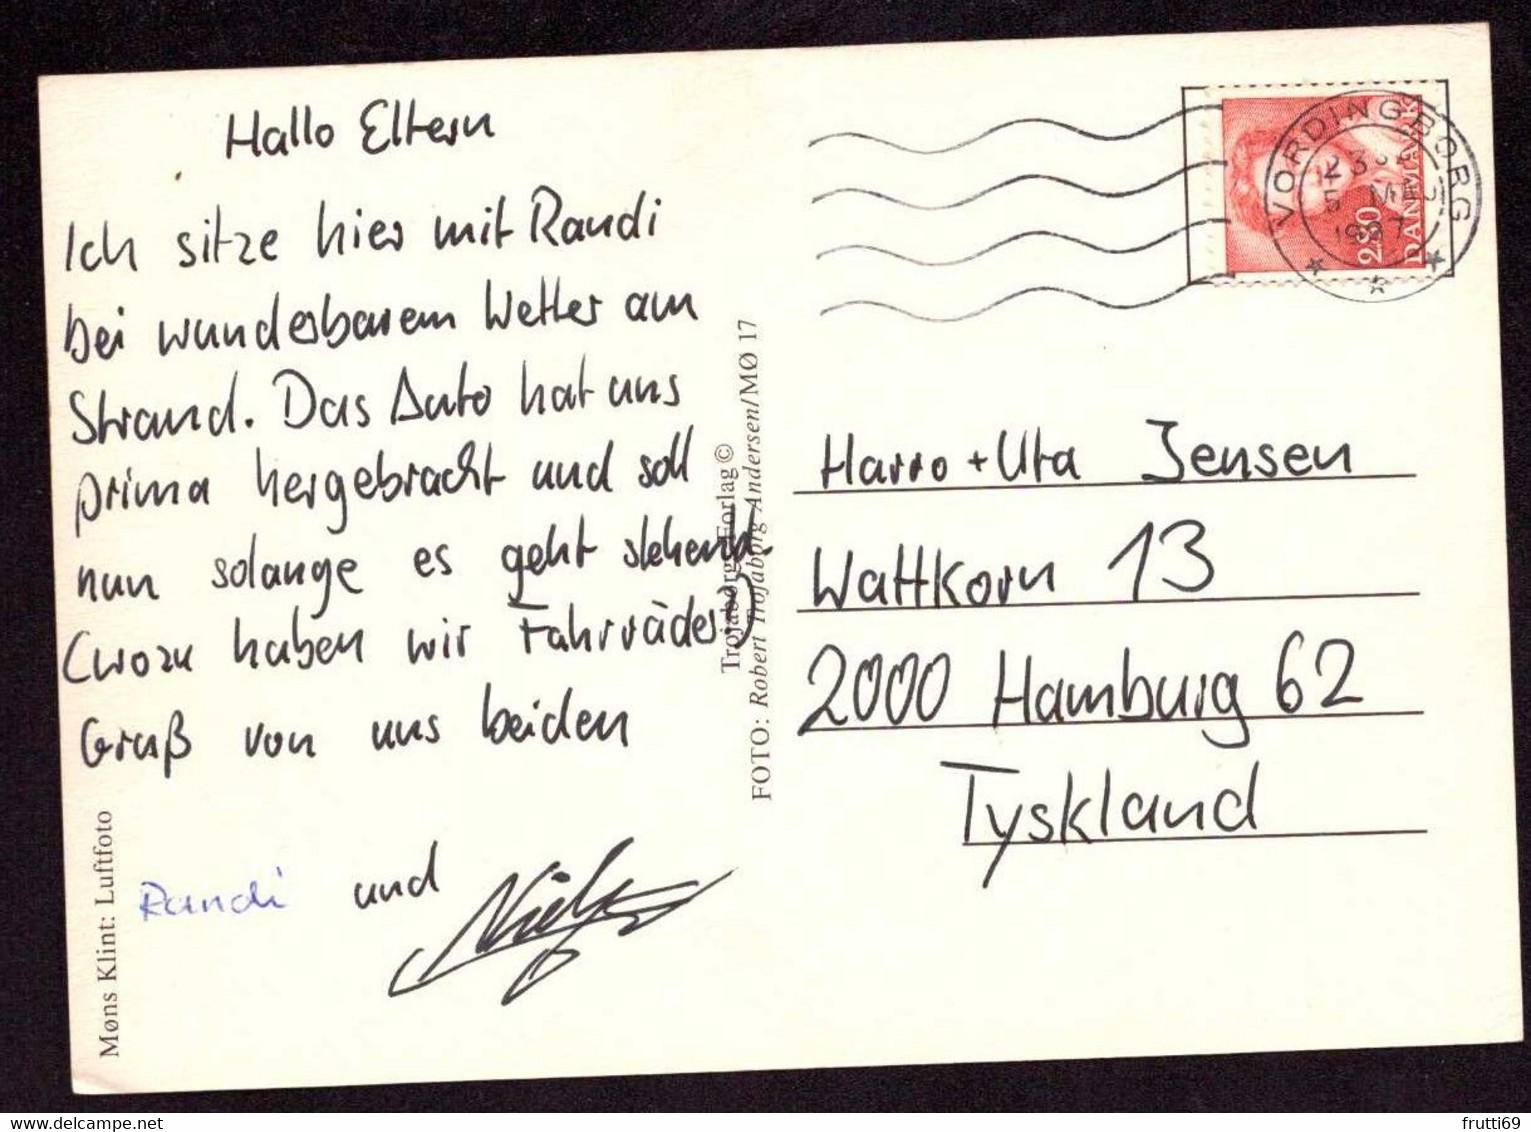 Hallo Eltern
Ich sitze hier mit Randi
bei wunderbarem Wetter am
Strand. Das Auto hat uns
prima hergebracht und soll
nun solange es geht stehen
(wozu haben wir Fahrräder?)
Gruß von uns beiden
Randi und
Møns Klint: Luftfoto
Trojaborgs Forlag ©
FOTO: Robert Trojaborg Andersen/MØ 17
VORDINGBORG
5 MAJ
1987
2.80
DANMARK
Harro + Uta Jensen
Wattkorn 13
2000 Hamburg 62
Tyskland
frutti69